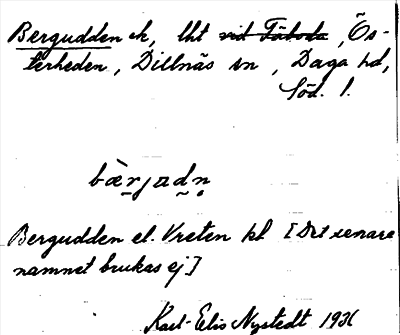 Bergudden ek, lht vid Täboda, Ös-
terheden, Dillnäs sn, Daga hd,
Söd. l.
bæ̀rjadn
Bergudden el. Vreten kl [Det senare
namnet brukas ej]
Karl-Elis Nystedt 1931